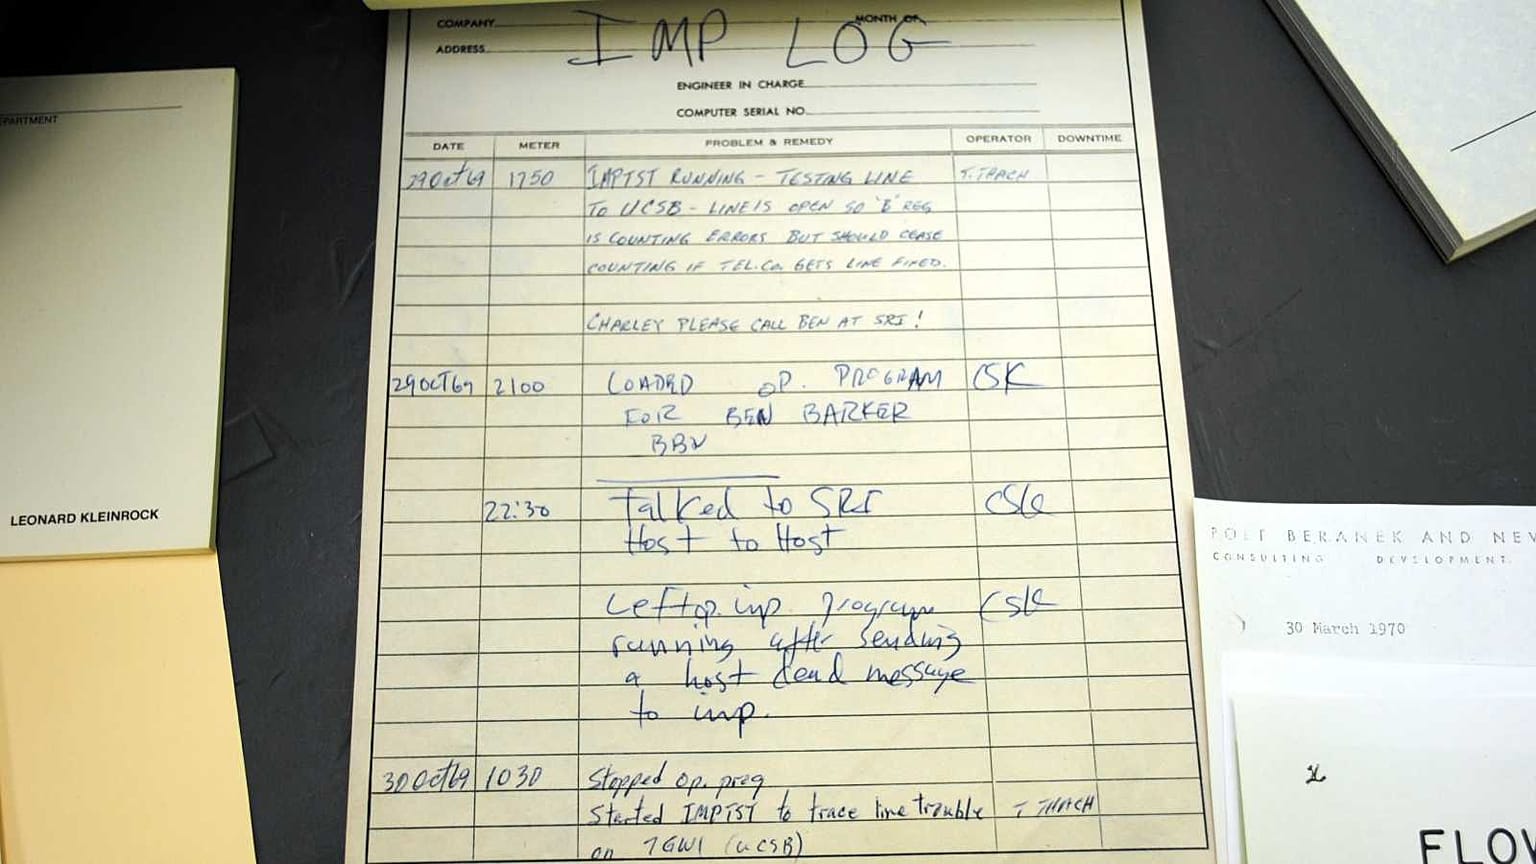 COMPANY MONTH OF
IMP LOG
ADDRESS
ENGINEER IN CHARGE
COMPUTER SERIAL NO.
DATE METER PROBLEM & REMEDY OPERATOR DOWNTIME
29 Oct 69 1750 IMPTST RUNNING - TESTING LINE T. THACH
TO UCSB - LINE IS OPEN SO "B" REG
IS COUNTING ERRORS BUT SHOULD CEASE
COUNTING IF TEL.CO. GETS LINE FIXED.
CHARLEY PLEASE CALL BEN AT SRI!
29 OCT 69 2100 LOADED OP. PROGRAM CSK
FOR BEN BARKER
BBN
22:30 Talked to SRI CSK
Host to Host
Left op. imp. program CSK
running after sending
a host dead message
to imp.
30 Oct 69 1030 Stopped op. prog
Started IMPTST to trace line trouble T THACH
on (UCSB)
LEONARD KLEINROCK
BOLT BERANEK AND NEW
CONSULTING DEVELOPMENT
30 March 1970
FLOW